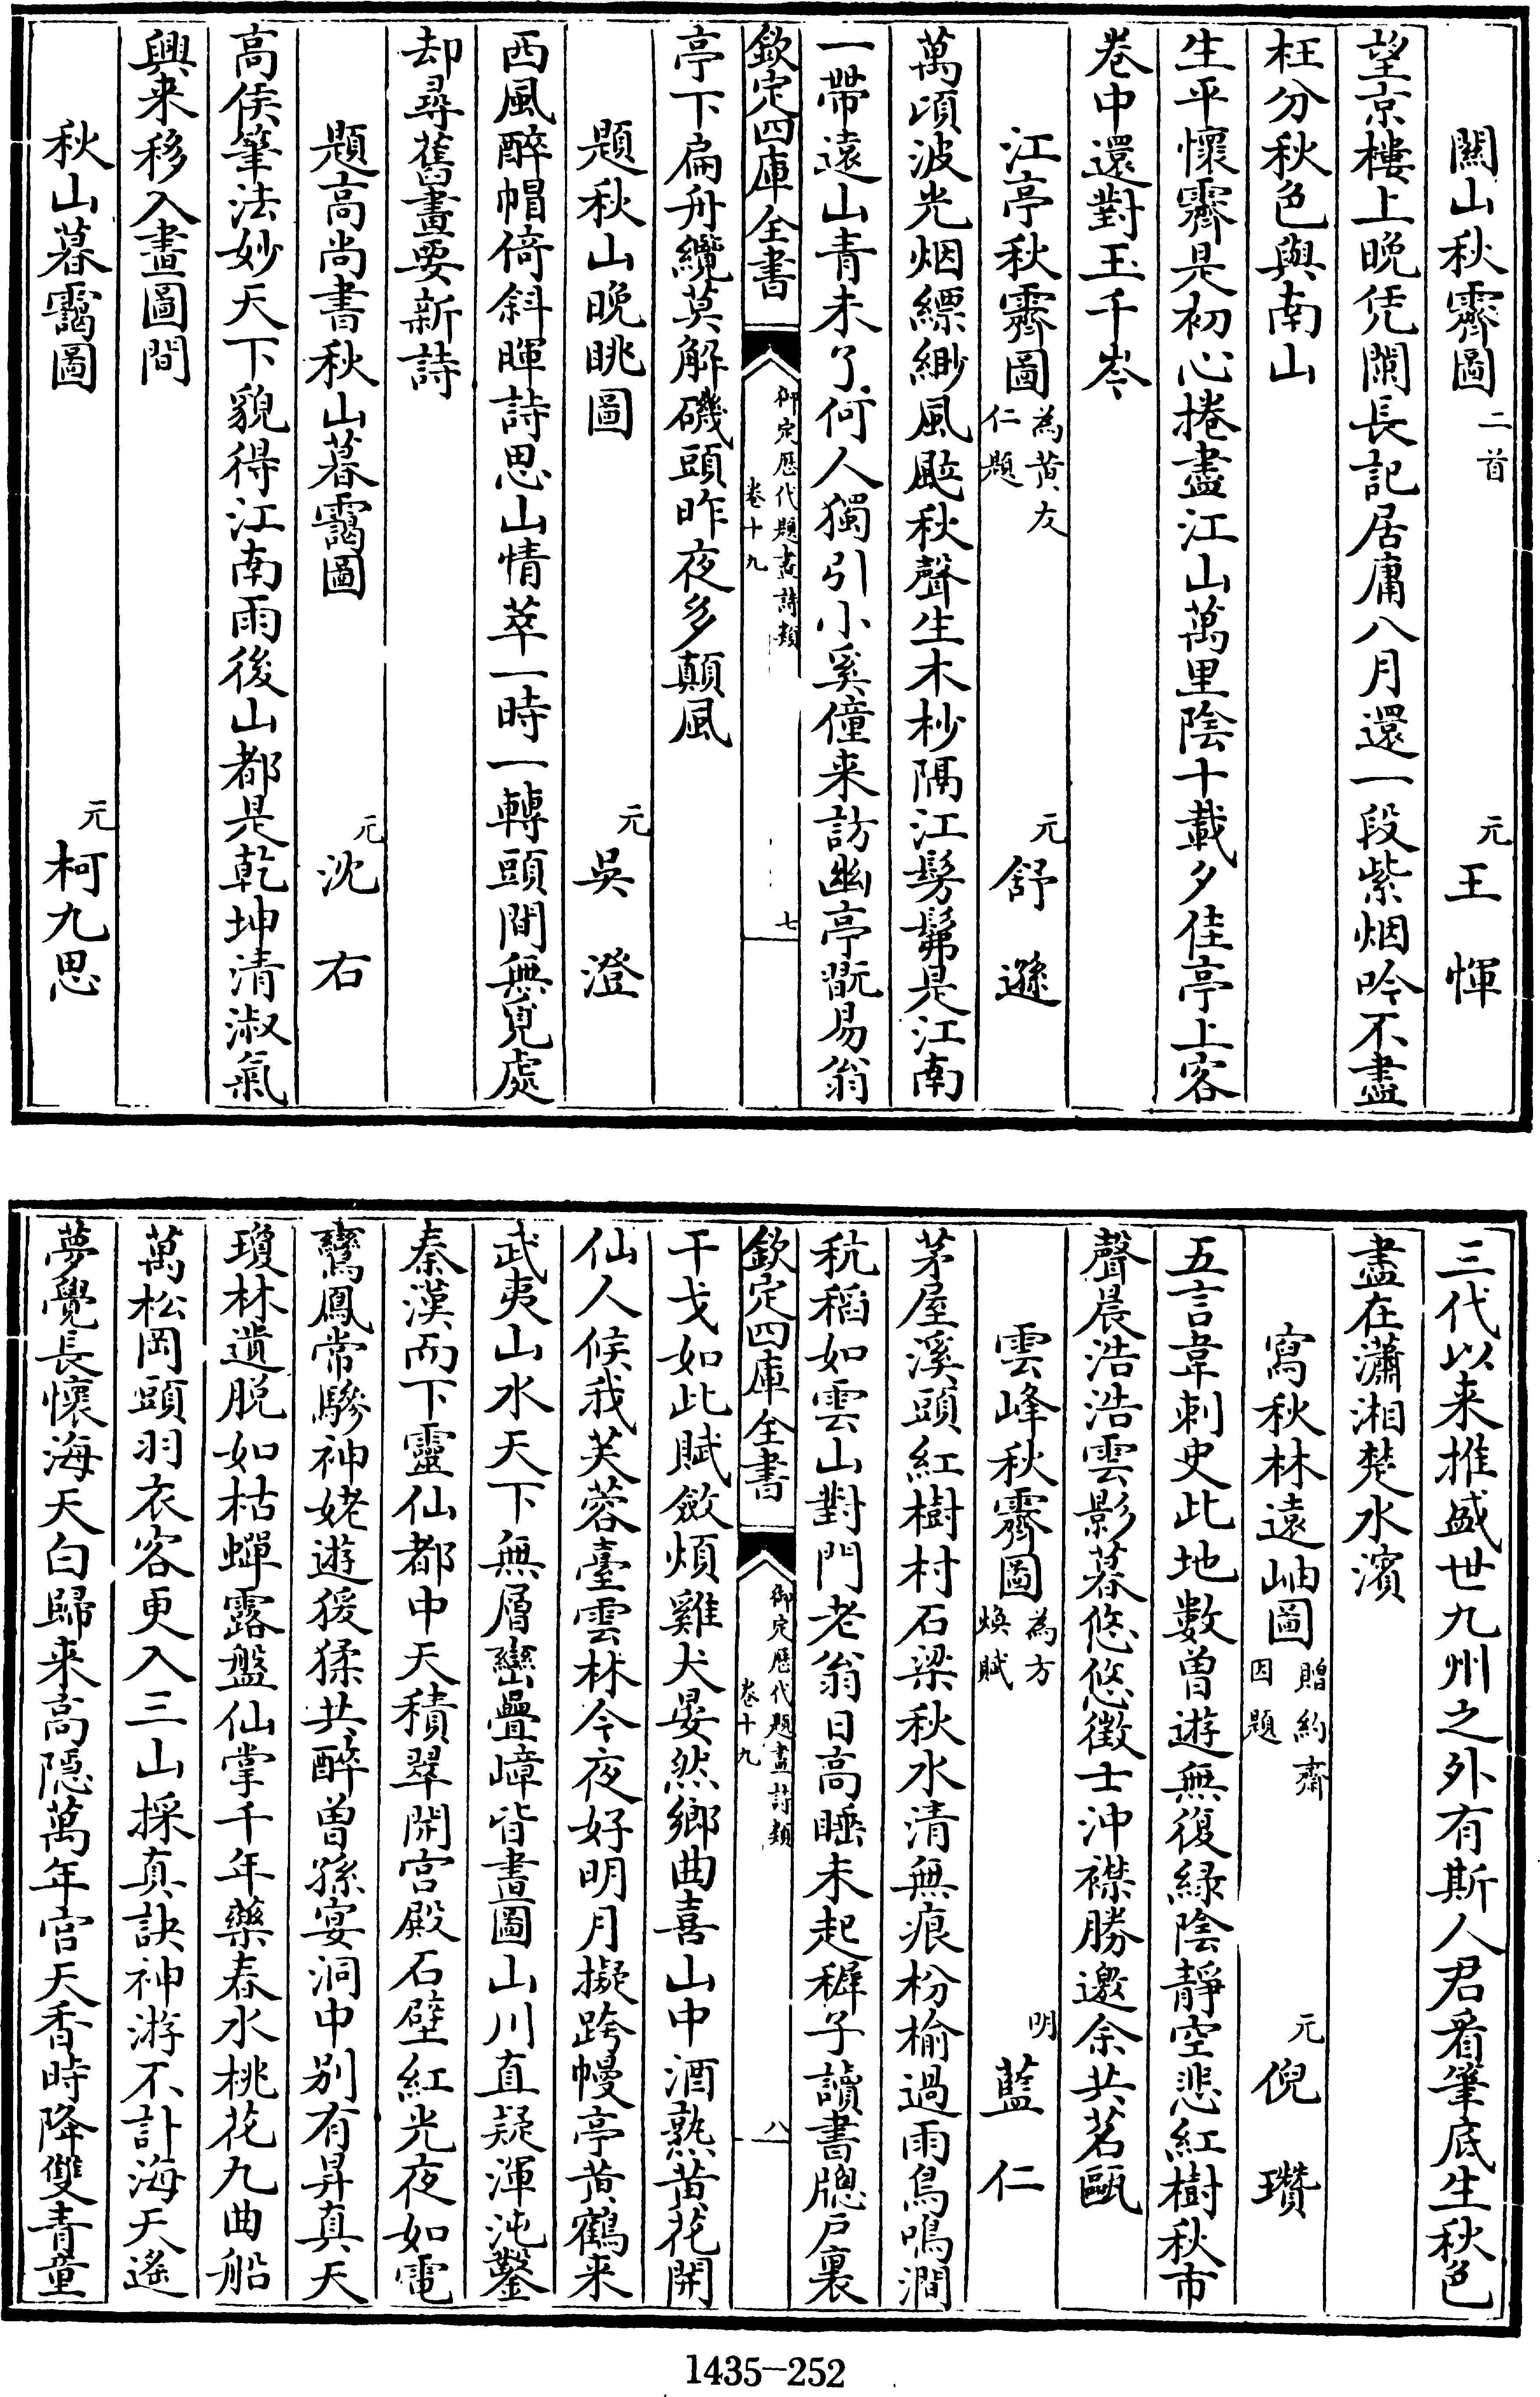 關山秋霽圖二首　元王惲
望京樓上晚凭闌長記居庸八月還一段紫烟吟不盡
枉分秋色與南山
生平懷霽是初心捲盡江山萬里陰十載夕佳亭上客
巻中還對玉千岑
江亭秋霽圖為黄友仁題　元舒遜
萬頃波光烟縹緲風颭秋聲生木杪隔江髣髴是江南
一帶遠山青未了何人獨引小奚僮来訪幽亭翫易翁
欽定四庫全書　御定歴代題畫詩類卷十九　七
亭下扁舟纜莫解磯頭昨夜多顛風
題秋山晚眺圖　元吳澄
西風醉帽倚斜暉詩思山情萃一時一轉頭間無覓處
却尋舊畫要新詩
題高尚書秋山暮靄圖　元沈右
高侯筆法妙天下貌得江南雨後山都是乾坤清淑氣
興来移入畫圖間
秋山暮靄圖　元柯九思
三代以来推盛世九州之外有斯人君看筆底生秋色
盡在瀟湘楚水濱
寫秋林遠岫圖贈約齋因題　元倪瓚
五言韋刺史此地數曽遊無復緑陰靜空悲紅樹秋市
聲晨浩浩雲影暮悠悠徵士沖襟勝邀余共茗甌
雲峰秋霽圖為方煥賦　明藍仁
茅屋溪頭紅樹村石梁秋水清無痕枌榆過雨鳥鳴澗
秔稻如雲山對門老翁日高睡未起穉子讀書牕戶裏
欽定四庫全書　御定歴代題畫詩類卷十九　八
干戈如此賦斂煩雞犬晏然鄉曲喜山中酒熟黄花開
仙人候我芙蓉臺雲林今夜好明月擬跨幔亭黄鶴来
武夷山水天下無層巒疊嶂皆畫圖山川直疑渾沌鑿
秦漢而下靈仙都中天積翠開宫殿石壁紅光夜如電
鸞鳳常驂神姥遊猨猱共醉曽孫宴洞中別有昇真天
瓊林遺脱如枯蟬露盤仙掌千年藥春水桃花九曲船
萬松岡頭羽衣客更入三山採真訣神游不計海天遙
夢覺長懷海天白歸来高隠萬年宫天香時降雙青童
1435-252